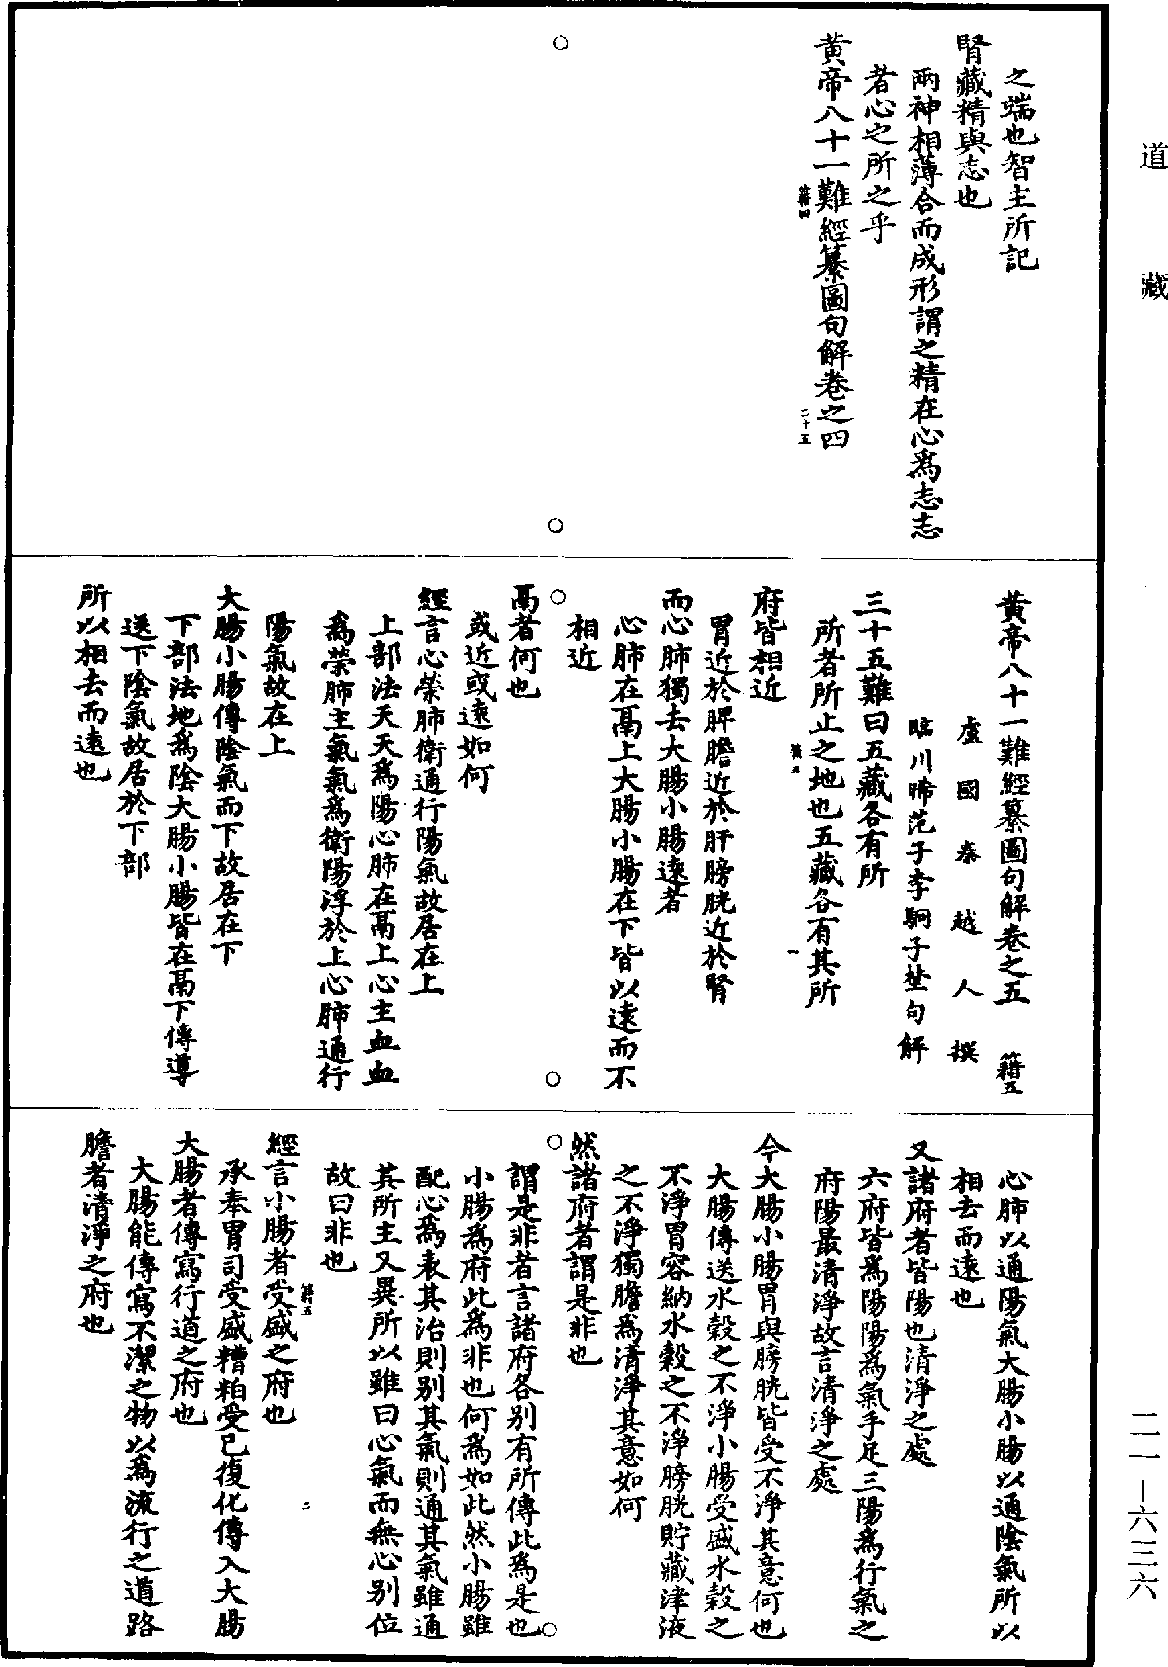 道藏
之端也智主所記
腎藏精與志也
兩神相薄合而成形謂之精在心為志志
者心之所之乎
黃帝八十一難經纂圖句解卷之四
籍四
二十五
黃帝八十一難經纂圖句解卷之五 籍五
盧國秦越人撰
臨川晞范子李駉子埜句解
三十五難曰五藏各有所
所者所止之地也五藏各有其所
一
府皆相近
胃近於脾膽近於肝膀胱近於腎
而心肺獨去大腸小腸遠者
心肺在鬲上大腸小腸在下皆以遠而不
相近
鬲者何也
或近或遠如何
經言心榮肺衛通行陽氣故居在上
上部法天天為陽心肺在鬲上心主血血
為榮肺主氣氣為衛陽浮於上心肺通行
陽氣故在上
大腸小腸傳陰氣而下故居在下
下部法地為陰大腸小腸皆在鬲下傳導
送下陰氣故居於下部
所以相去而遠也
心肺以通陽氣大腸小腸以通陰氣所以
相去而遠也
又諸府者皆陽也清淨之處
六府皆為陽陽為氣手足三陽為行氣之
府陽最清淨故言清淨之處
今大腸小腸胃與膀胱皆受不淨其意何也
大腸傳送水穀之不淨小腸受盛水穀之
不淨胃容納水穀之不淨膀胱貯藏津液
之不淨獨膽為清淨其意如何
然諸府者謂是非也
謂是非者言諸府各別有所傳此為是也
小腸為府此為非也何為如此然小腸雖
配心為表其治則別其氣則通其氣雖通
其所主又異所以雖曰心氣而無心別位
故曰非也
經言小腸者受盛之府也
籍五
二
承奉胃司受盛糟粕受已復化傳入大腸
大腸者傳寫行道之府也
大腸能傳寫不潔之物以為流行之道路
膽者清淨之府也
二一—六三六